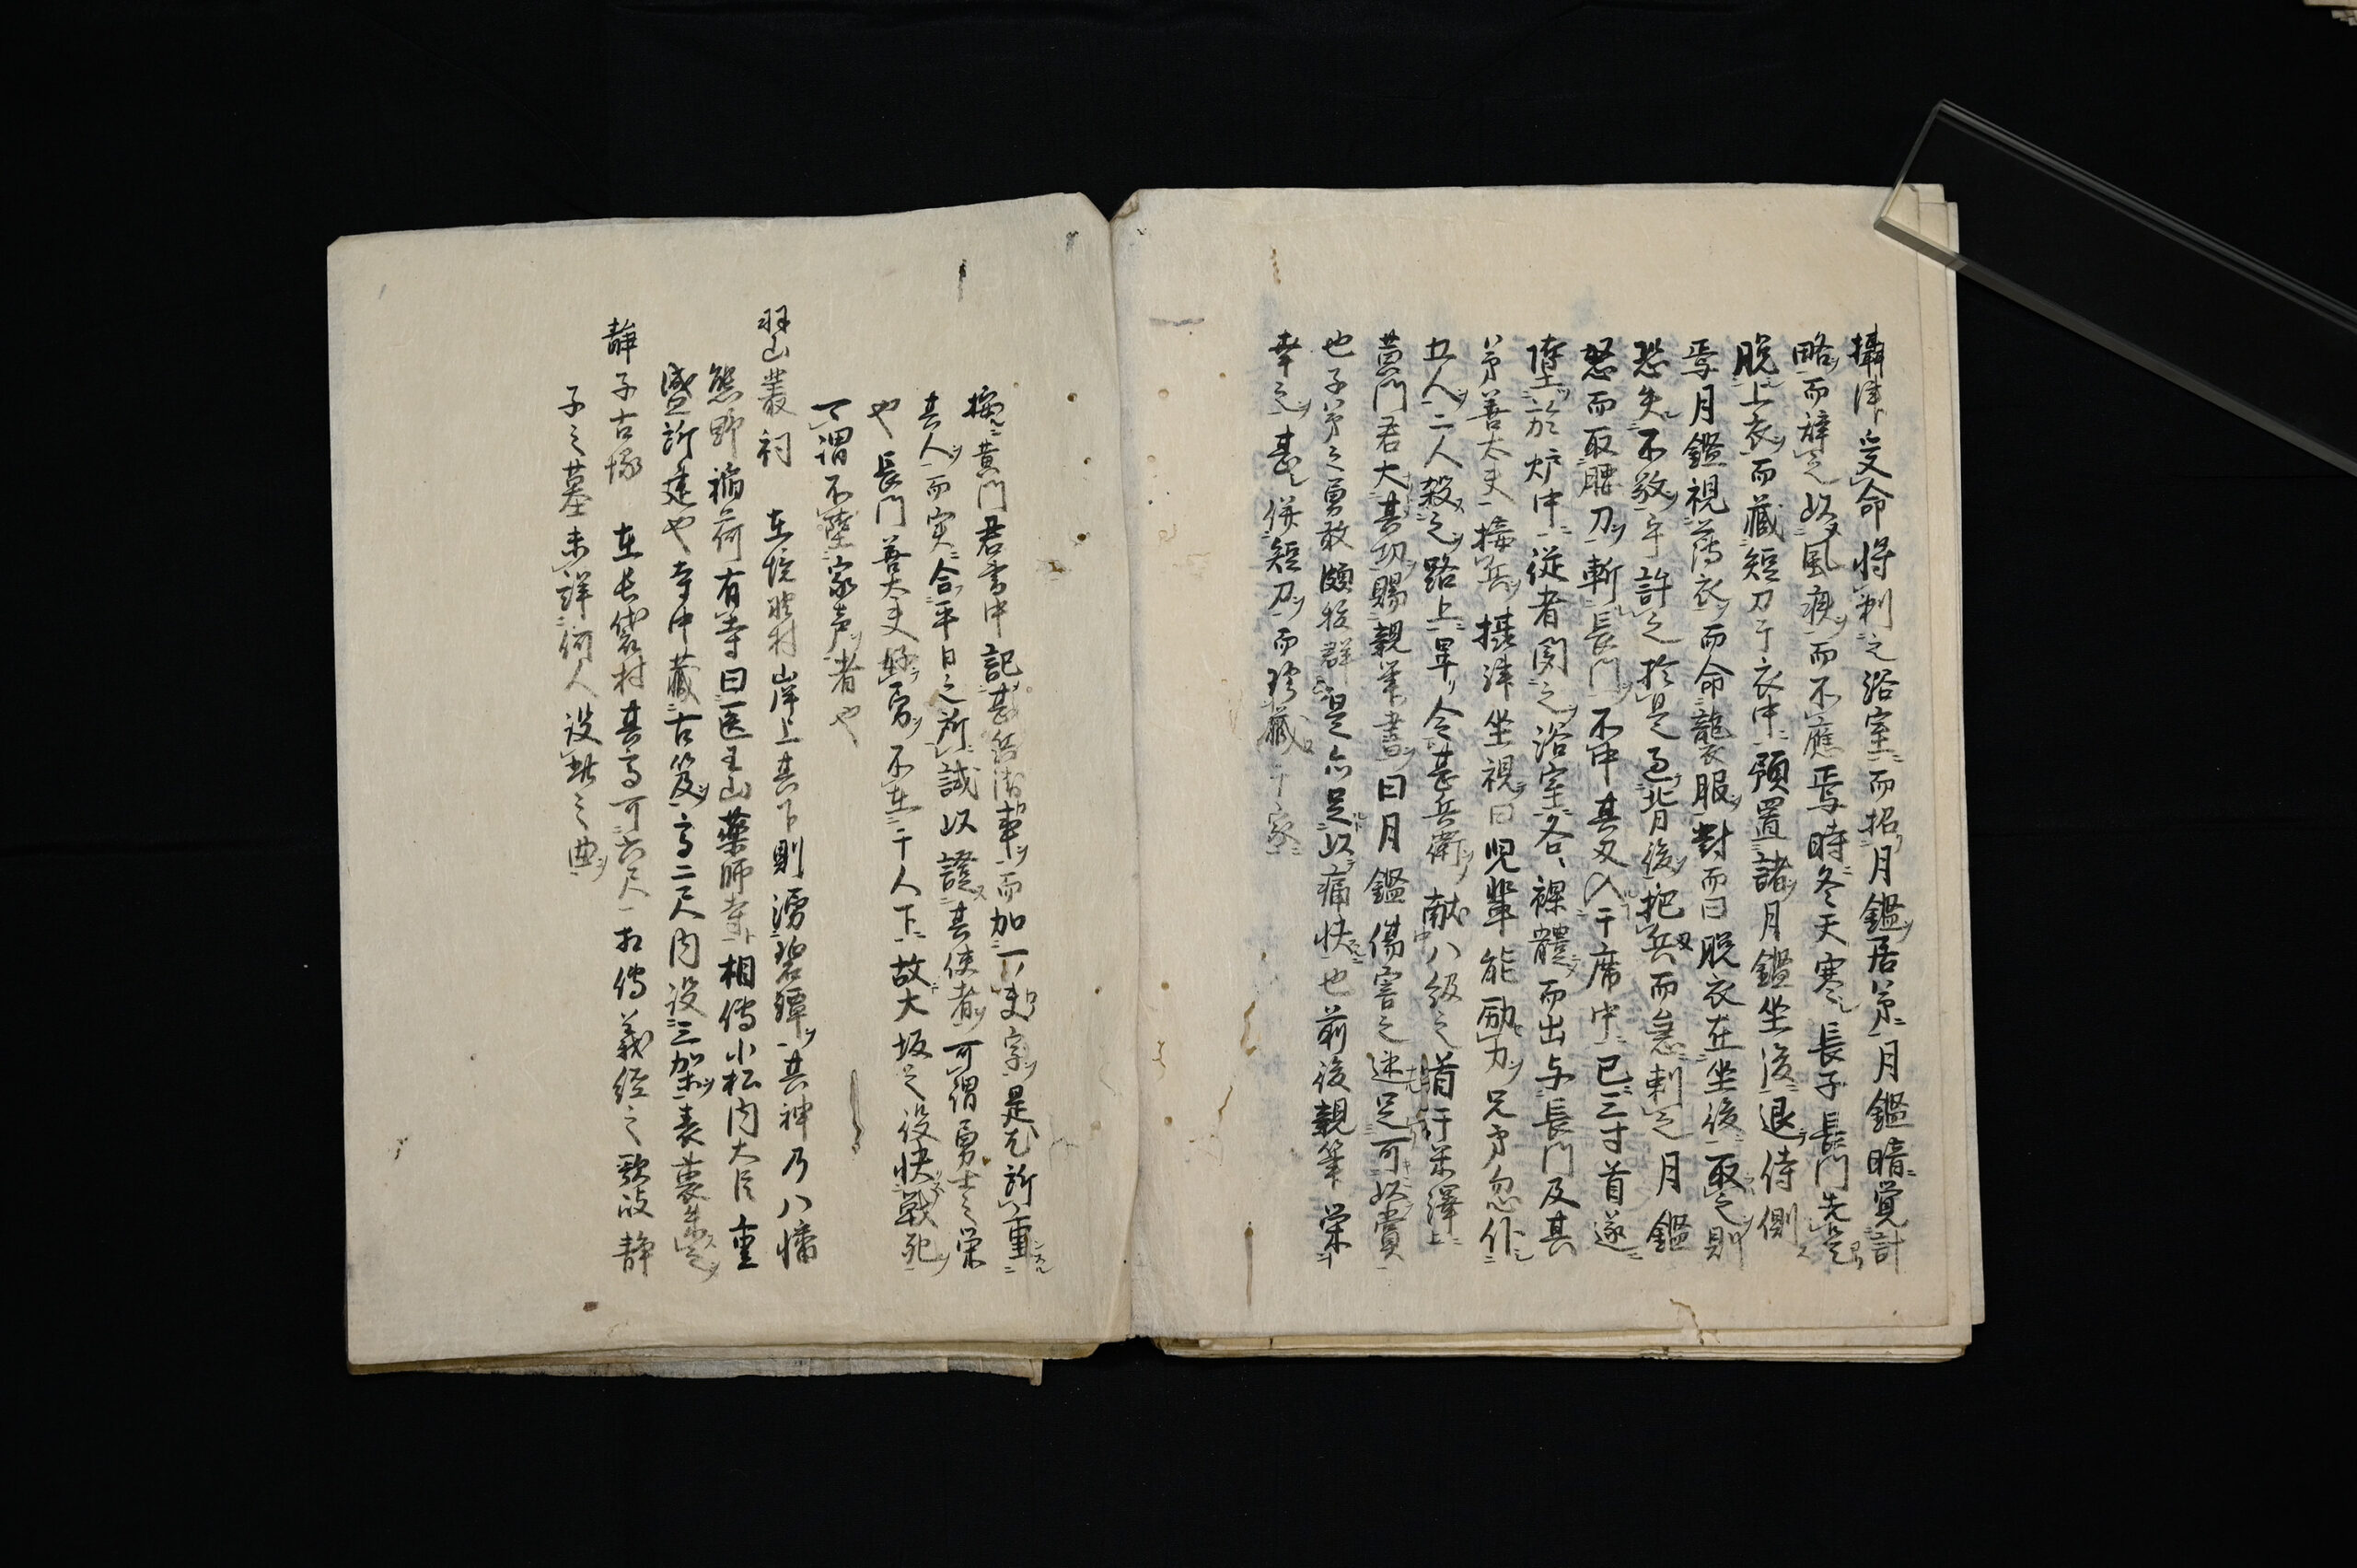 攝津受命将刺之浴室而招月鑑居第月鑑暗覚計
略而辞之以風痳而不應焉時冬天寒長子長門先是
脱上衣而蔵短刀于衣中預置諸月鑑坐後退侍側
焉月鑑視薄衣而命襲衣服對而曰脱衣在坐後取之則
恐失不敬乎許之於是過背後把兵而急刺之月鑑
怒而取腰刀斬長門不中其刃入于席中已三寸首遂
墮於炉中従者聞之浴室各裸體而出与長門及其
弟善太夫接兵攝津坐視曰児輩能励力兄弟忽仆
五人二人殺之路上畢令甚兵衛献八級之首于米澤
黄門君大甚功賜親筆書曰月鑑傷害之速足可以賞
也子弟之勇敢頗抜群是亦足以痛快也前後親筆栄
幸之甚併短刀而珎蔵于家
按黄門君書中記甚兵衛事而加一吏字是尤所重
其人而実合平日之所誠以證其使者可謂勇士之栄
也長門善太夫好勇不在于人下故大坂之役快戦死
可謂不墜家声者也
羽山叢祠 在 村山岸上其下則湧碧潭其神乃八幡
熊野稲荷有寺曰医王山薬師寺相傳小松内大臣重
盛所建也寺中蔵古笈高二尺内設三架表裏
静子古塚 在長袋村其高可六尺相傳義経之歌故静
子之墓未詳何人設此之典